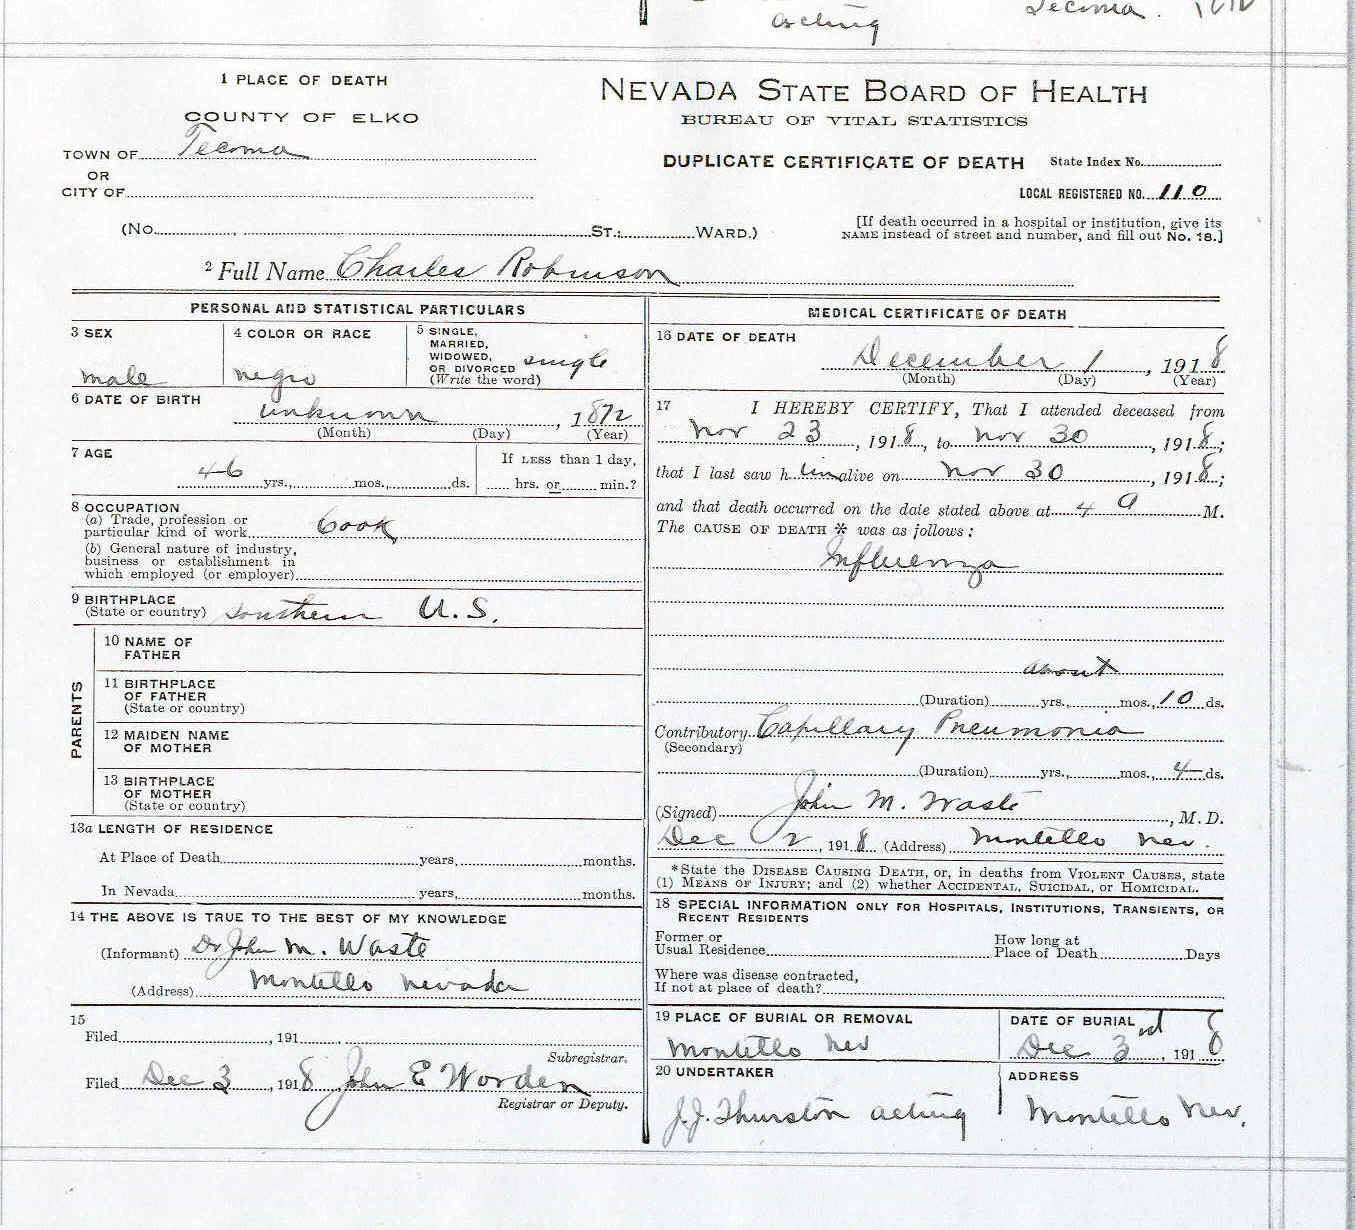 acting
Tecoma.
1 PLACE OF DEATH
COUNTY OF ELKO
TOWN OF Tecoma
OR
CITY OF
(No. ST.; WARD.)
NEVADA STATE BOARD OF HEALTH
BUREAU OF VITAL STATISTICS
DUPLICATE CERTIFICATE OF DEATH State Index No.
LOCAL REGISTERED NO. 110
[If death occurred in a hospital or institution, give its
NAME instead of street and number, and fill out No. 18.]
2 Full Name Charles Robinson
PERSONAL AND STATISTICAL PARTICULARS
3 SEX
male
4 COLOR OR RACE
negro
5 SINGLE,
MARRIED,
WIDOWED,
OR DIVORCED single
(Write the word)
6 DATE OF BIRTH
unknown , 1872
(Month) (Day) (Year)
7 AGE
46 yrs., mos., ds.
If LESS than 1 day,
hrs. or min.?
8 OCCUPATION
(a) Trade, profession or
particular kind of work Cook
(b) General nature of industry,
business or establishment in
which employed (or employer)
9 BIRTHPLACE
(State or country) Southern U.S.
PARENTS
10 NAME OF
FATHER
11 BIRTHPLACE
OF FATHER
(State or country)
12 MAIDEN NAME
OF MOTHER
13 BIRTHPLACE
OF MOTHER
(State or country)
13a LENGTH OF RESIDENCE
At Place of Death years, months.
In Nevada years, months.
14 THE ABOVE IS TRUE TO THE BEST OF MY KNOWLEDGE
(Informant) Dr John M. Waste
(Address) Montello Nevada
15
Filed , 191
Subregistrar.
Filed Dec 3 , 1918 John E Worden
Registrar or Deputy.
MEDICAL CERTIFICATE OF DEATH
16 DATE OF DEATH
December 1 , 1918
(Month) (Day) (Year)
17 I HEREBY CERTIFY, That I attended deceased from
Nov 23 , 1918, to Nov 30 , 1918;
that I last saw him alive on Nov 30 , 1918;
and that death occurred on the date stated above at 4 a M.
The CAUSE OF DEATH * was as follows:
Influenza
about
(Duration) yrs., mos., 10 ds.
Contributory Capillary Pneumonia
(Secondary)
(Duration) yrs., mos., 4 ds.
(Signed) John M. Waste , M. D.
Dec 2 , 1918 (Address) Montello Nev.
*State the DISEASE CAUSING DEATH, or, in deaths from VIOLENT CAUSES, state
(1) MEANS OF INJURY; and (2) whether ACCIDENTAL, SUICIDAL, or HOMICIDAL.
18 SPECIAL INFORMATION ONLY FOR HOSPITALS, INSTITUTIONS, TRANSIENTS, OR
RECENT RESIDENTS
Former or
Usual Residence
How long at
Place of Death Days
Where was disease contracted,
If not at place of death?
19 PLACE OF BURIAL OR REMOVAL
Montello Nev
DATE OF BURIAL
Dec 3rd , 1918
20 UNDERTAKER
J.J. Thurston acting
ADDRESS
Montello Nev.